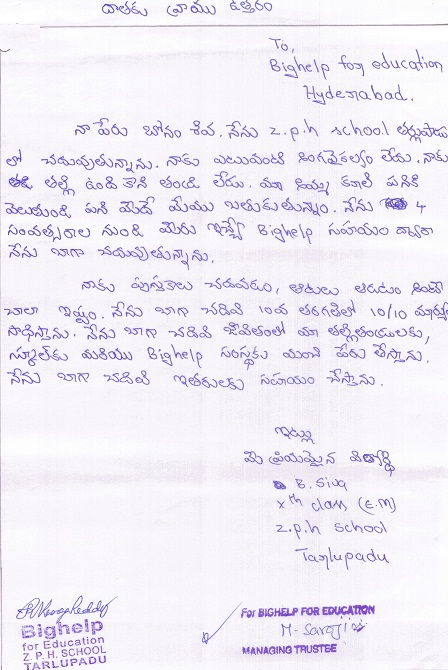 దాతకు వ్రాయు ఉత్తరం
To,
Bighelp for education
Hyderabad.
నా పేరు బోనం శివ. నేను z.p.h school తర్లుపాడు
లో చదువుతున్నాను. నాకు ఎటువంటి అంగవైకల్యం లేదు. నాకు
తల్లి ఉంది కాని తండ్రి లేడు. మా అమ్మ కూలి పనికి
వెలుతుంది పని మీదే మేము బతుకుతున్నాం. నేను 4
సంవత్సరాల నుండి మీరు ఇచ్చే Bighelp సహాయం ద్వారా
నేను బాగా చదువుతున్నాను.
నాకు పుస్తకాలు చదవడం, ఆటలు ఆడటం అంటే
చాలా ఇష్టం. నేను బాగా చదివి 10వ తరగతిలో 10/10 మార్కులు
సాధిస్తాను. నేను బాగా చదివి జీవితంలో మా తల్లితండ్రులకు,
స్కూల్‌కు మరియు Bighelp సంస్థకు మంచి పేరు తెస్తాను.
నేను బాగా చదివి ఇతరులకు సహాయం చేస్తాను.
ఇట్లు
మీ ప్రియమైన విద్యార్థి
B. Siva
Xth class (E.M)
z.p.h school
Tarlupadu
Bighelp
for Education
Z. P. H. SCHOOL
TARLUPADU
For BIGHELP FOR EDUCATION
M. Sarojini
MANAGING TRUSTEE